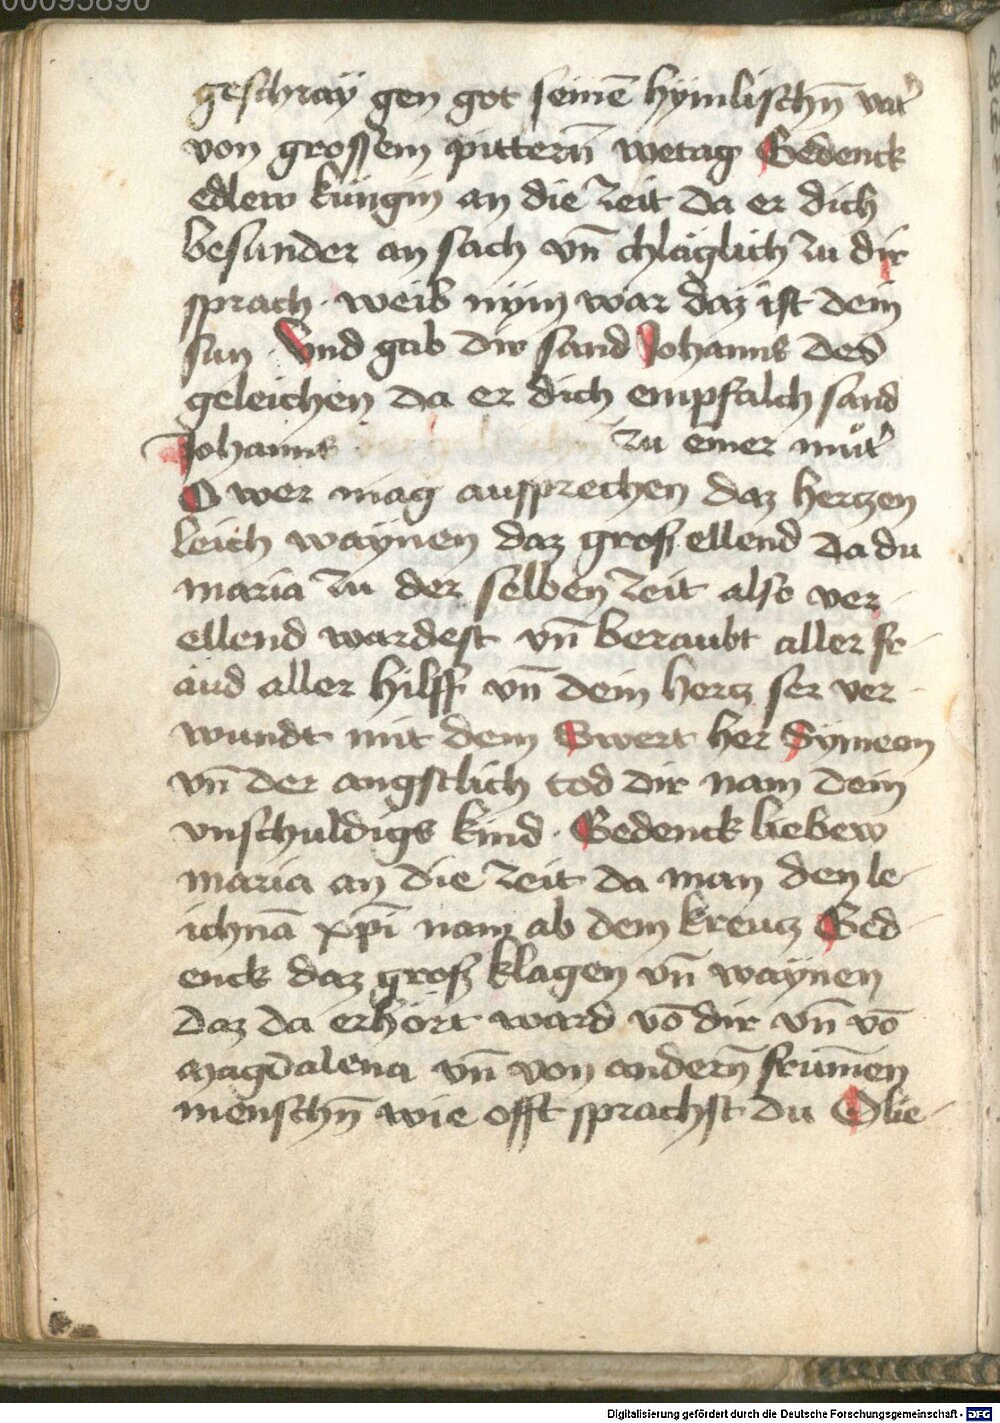 00095890
geschray gen got seinē hymlischn̄ vat͛
von grossem pittern̄ wetag Gedenck
edlew küngin an die zeit da er dich
besunder an sach vn̄ chläglich zu dir
sprach · weib nym war daz ist dein
sun · Vnd gab dir sand Johanns des
geleichen da er dich empfalch sand
Johanns zu einer müt͛
O wer mag aussprechen daz hertzen
leich waynen daz gross ellend da du
maria zu der selben zeit also ver-
ellend wardest vn̄ beraubt aller fr-
äud aller hilff vn̄ dein hertz ser ver-
wundt mit dem Swert her Symeon
vn̄ der angstlich tod dir nam dein
vnschuldigs kind · Gedenck liebew
maria an die zeit da man den le-
ichnā xp̄i nam ab dem kreutz Ged-
enck daz gross klagen vn̄ waynen
daz da erhört ward vō dir vn̄ vō
magdalena vn̄ von andern̄ frum̄en
menschn̄ wie offt sprachst du O lie-
Digitalisierung gefördert durch die Deutsche Forschungsgemeinschaft - DFG